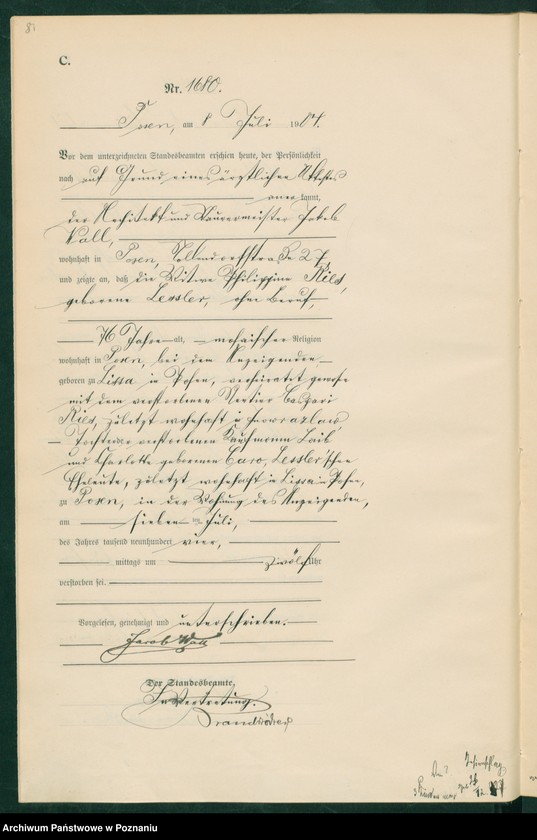 8
C.
Nr. 1680.
Posen, am 8 Juli 1904.
Vor dem unterzeichneten Standesbeamten erschien heute, der Persönlichkeit
nach auf Grund eines ärztlichen Attestes
aner kannt,
der Architekt und Maurermeister Jakob
Wall,
wohnhaft in Posen, 27,
und zeigte an, daß die Witwe Philippine
geborene Lessler, ohne Beruf,
76 Jahre alt, mosaischer Religion
wohnhaft in Posen, bei dem Anzeigenden
geboren zu Lissa in Posen, verheiratet gewesen
mit dem verstorbenen Rentier
zuletzt wohnhaft in Inowrazlaw
Tochter der verstorbenen Kaufmann Laib
und Charlotte geborenen Caro, Lessler'schen
Eheleute, zuletzt wohnhaft in Lissa in Posen,
zu Posen, in der Wohnung des Anzeigenden,
am sieben ten Juli,
des Jahres tausend neunhundert vier,
mittags um zwölf Uhr
verstorben sei.
Vorgelesen, genehmigt und unterschrieben.
Jacob Wall
Der Standesbeamte.
In Vertretung.
Archiwum Państwowe w Poznaniu